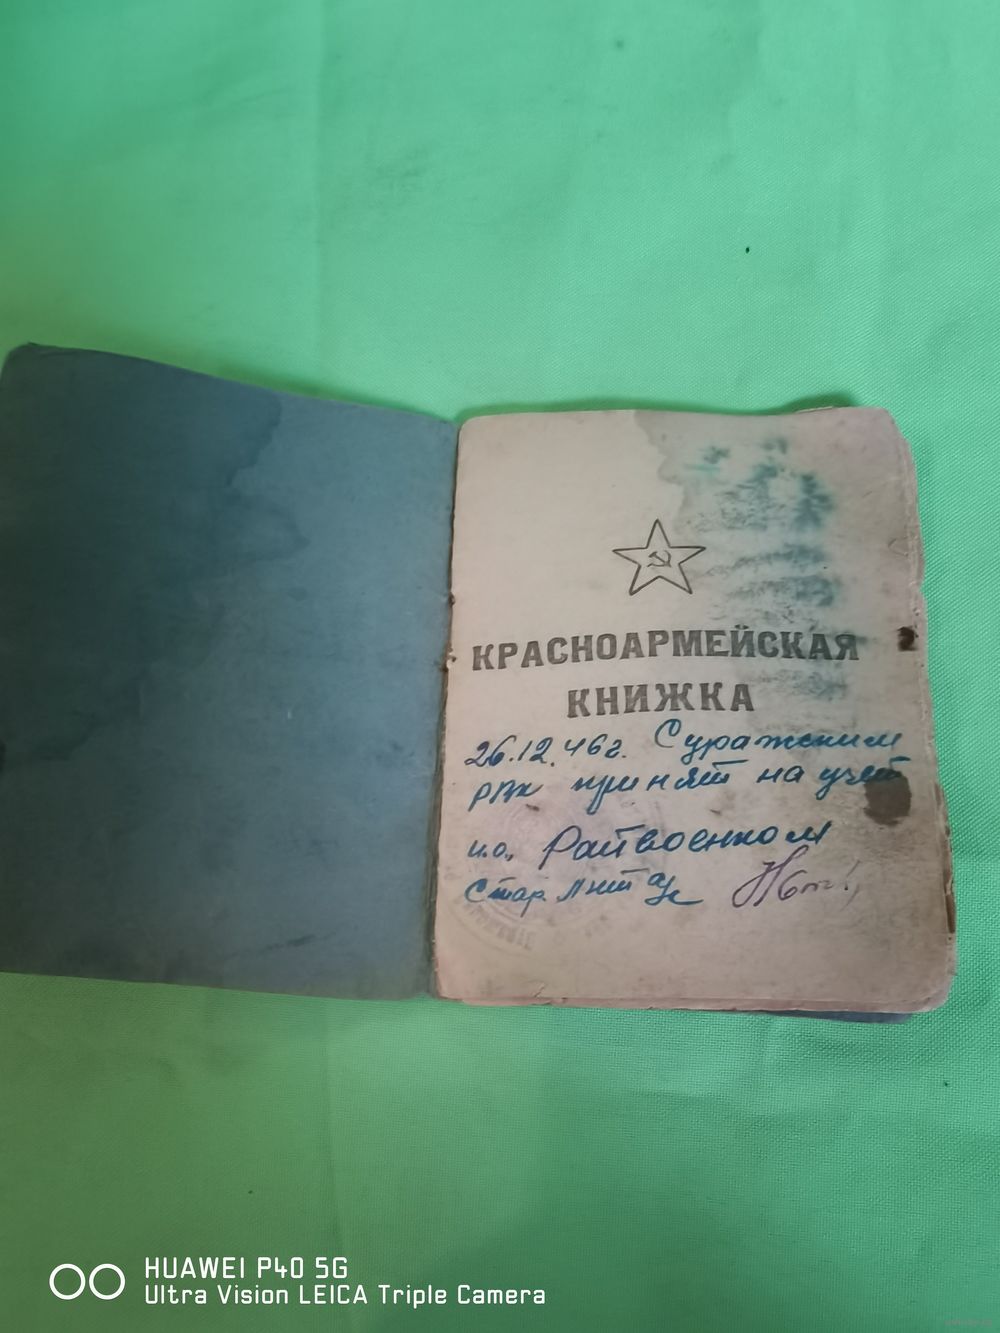 КРАСНОАРМЕЙСКАЯ
КНИЖКА
26.12.46г. Суражским
РВК принят на учет
и.о. Райвоенком
Стар. Л-нт а/с
HUAWEI P40 5G
Ultra Vision LEICA Triple Camera